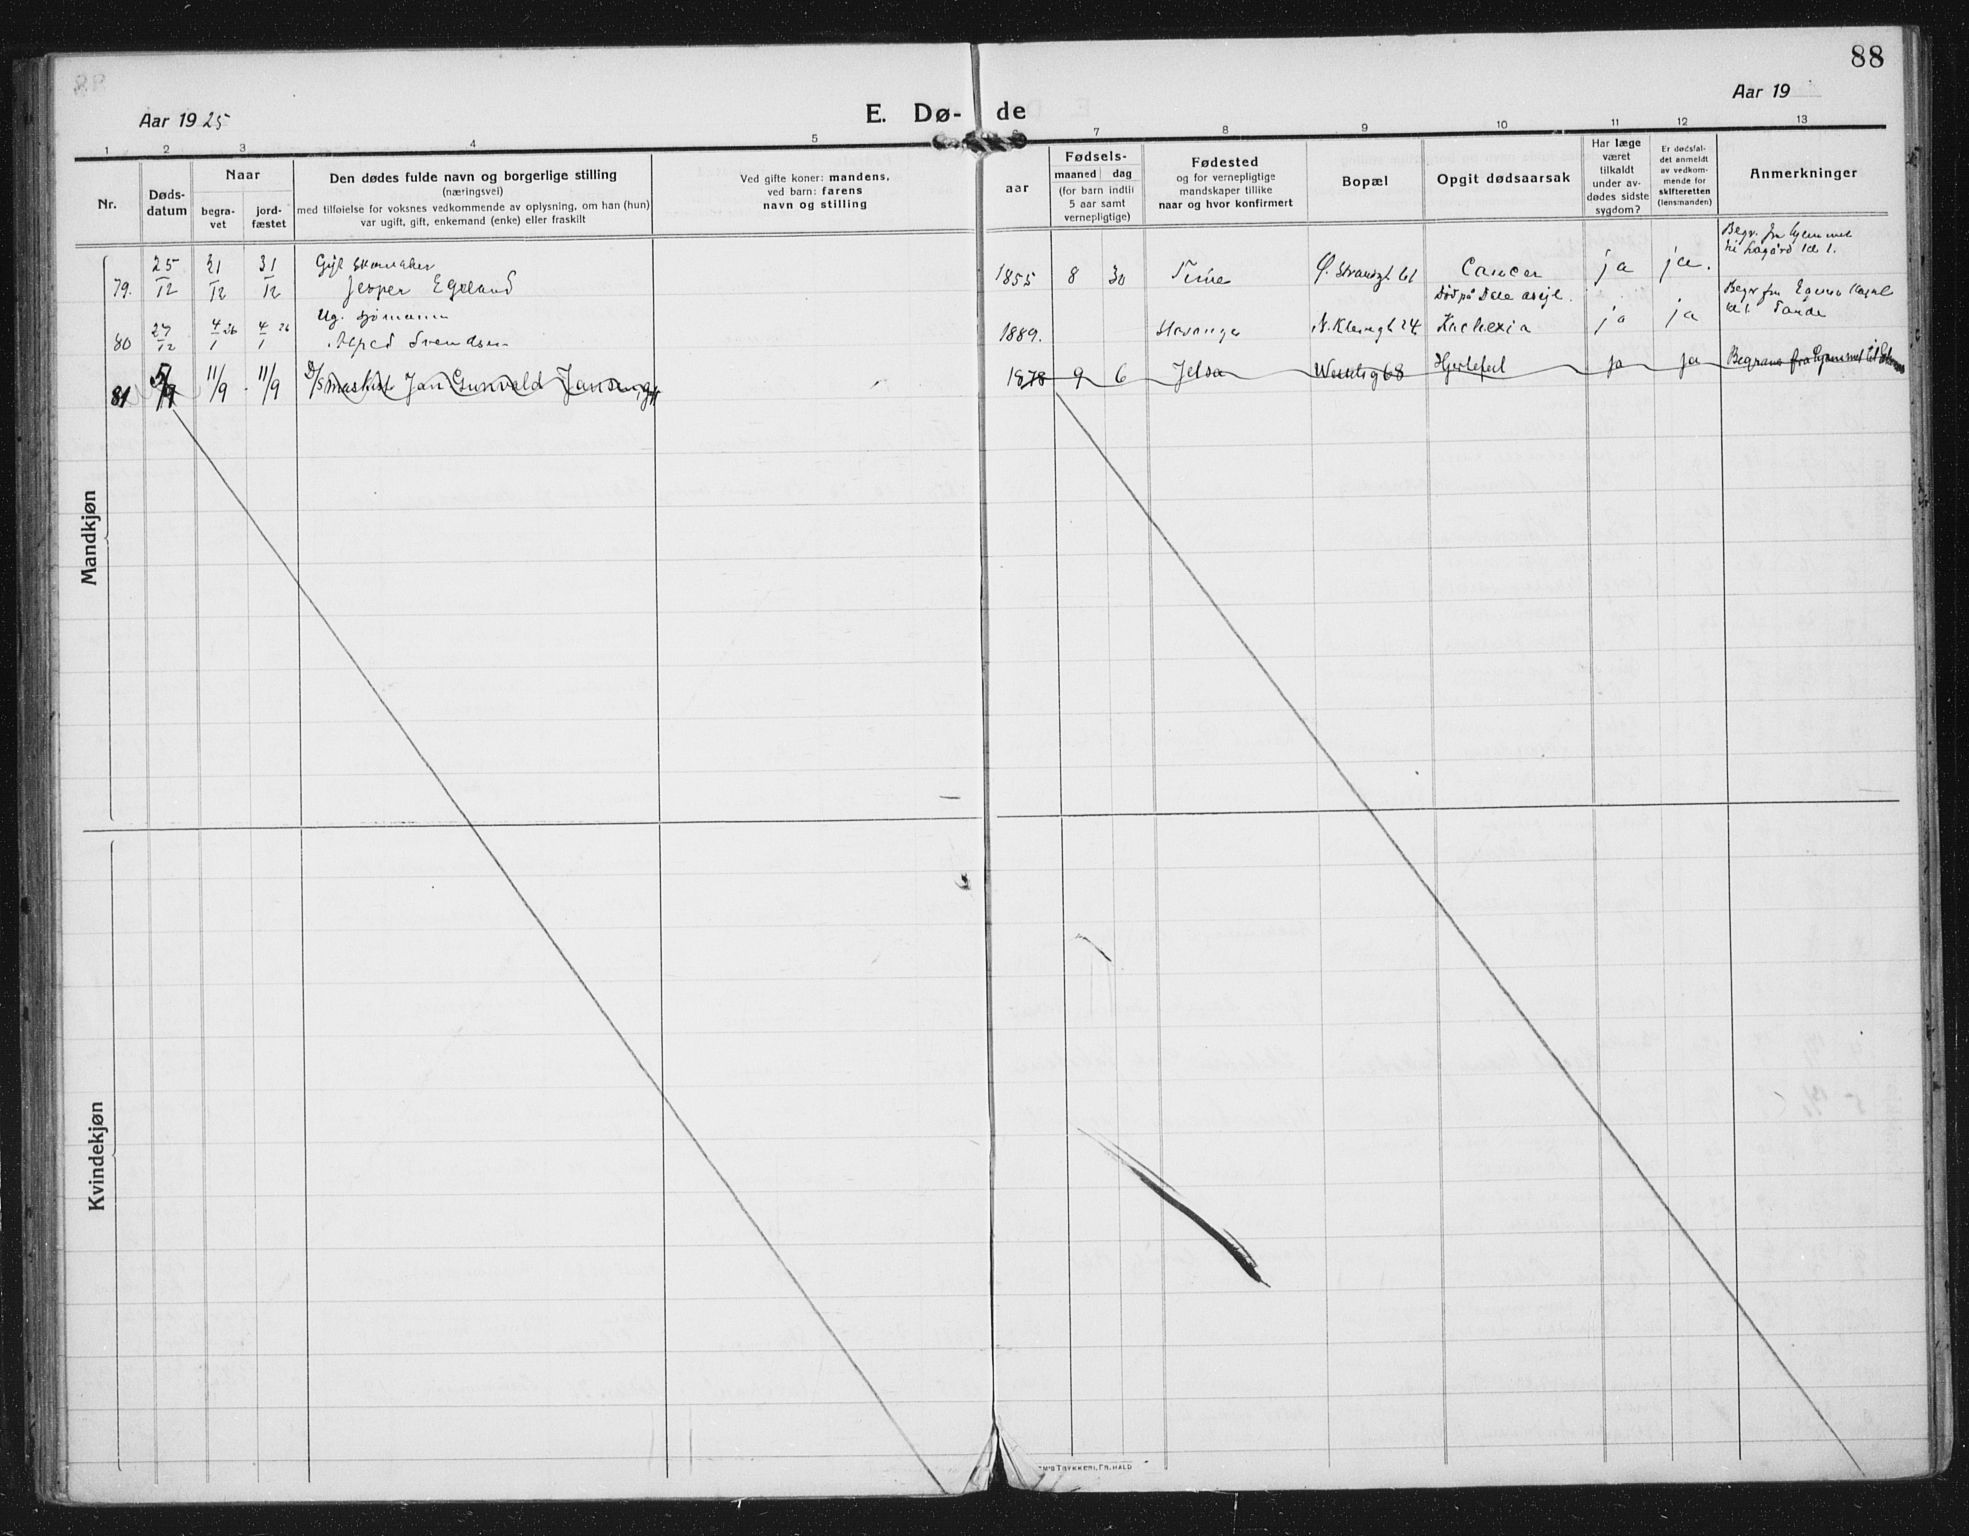 88
Aar 1925
E. Dø- de
Aar 19
1 2 3 4 5 6 7 8 9 10 11 12 13
Nr.
Døds-
datum
Naar
begra-
vet
jord-
fæstet
Den dødes fulde navn og borgerlige stilling
(næringsvei)
med tilføielse for voksnes vedkommende av oplysning, om han (hun)
var ugift, gift, enkemand (enke) eller fraskilt
Ved gifte koner: mandens,
ved barn: farens
navn og stilling
aar
Fødsels-
maaned dag
(for barn indtil
5 aar samt
vernepligtige)
Fødested
og for vernepligtige
mandskaper tillike
naar og hvor konfirmert
Bopæl
Opgit dødsaarsak
Har læge
været
tilkaldt
under av-
dødes sidste
sygdom?
Er dødsfal-
det anmeldt
av vedkom-
mende for
skifteretten
(lensmanden)
Anmerkninger
Mandkjøn
79. 25/12 31/12 31/12 Gift skomaker
Jesper Egeland
1855 8 30 Time Ø. Strandgt 61 Cancer ja ja. Begr. fra hjemmet
til Lagård
80 27/12 4/1 26 4/1 26 Ug. sjømann
Alfred Svendsen
1889. Stavanger N. Klevegt 24 Død på Dale asyl.
Kachexia ja ja Begr. fra
81 5/9 11/9 11/9 D/S maskist Jan Gunvald Jansen, gift
1878 9 6 Jelsa 68 Hjertefeil ja ja Begravet fra hjemmet til
Kvindekjøn
TRYKKERI, FR. HALD